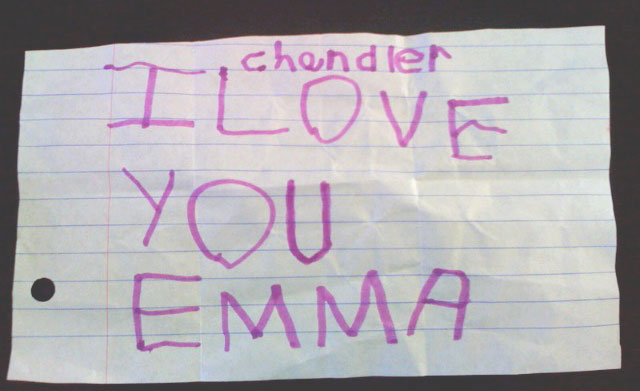 chandler
I LOVE
YOU
EMMA